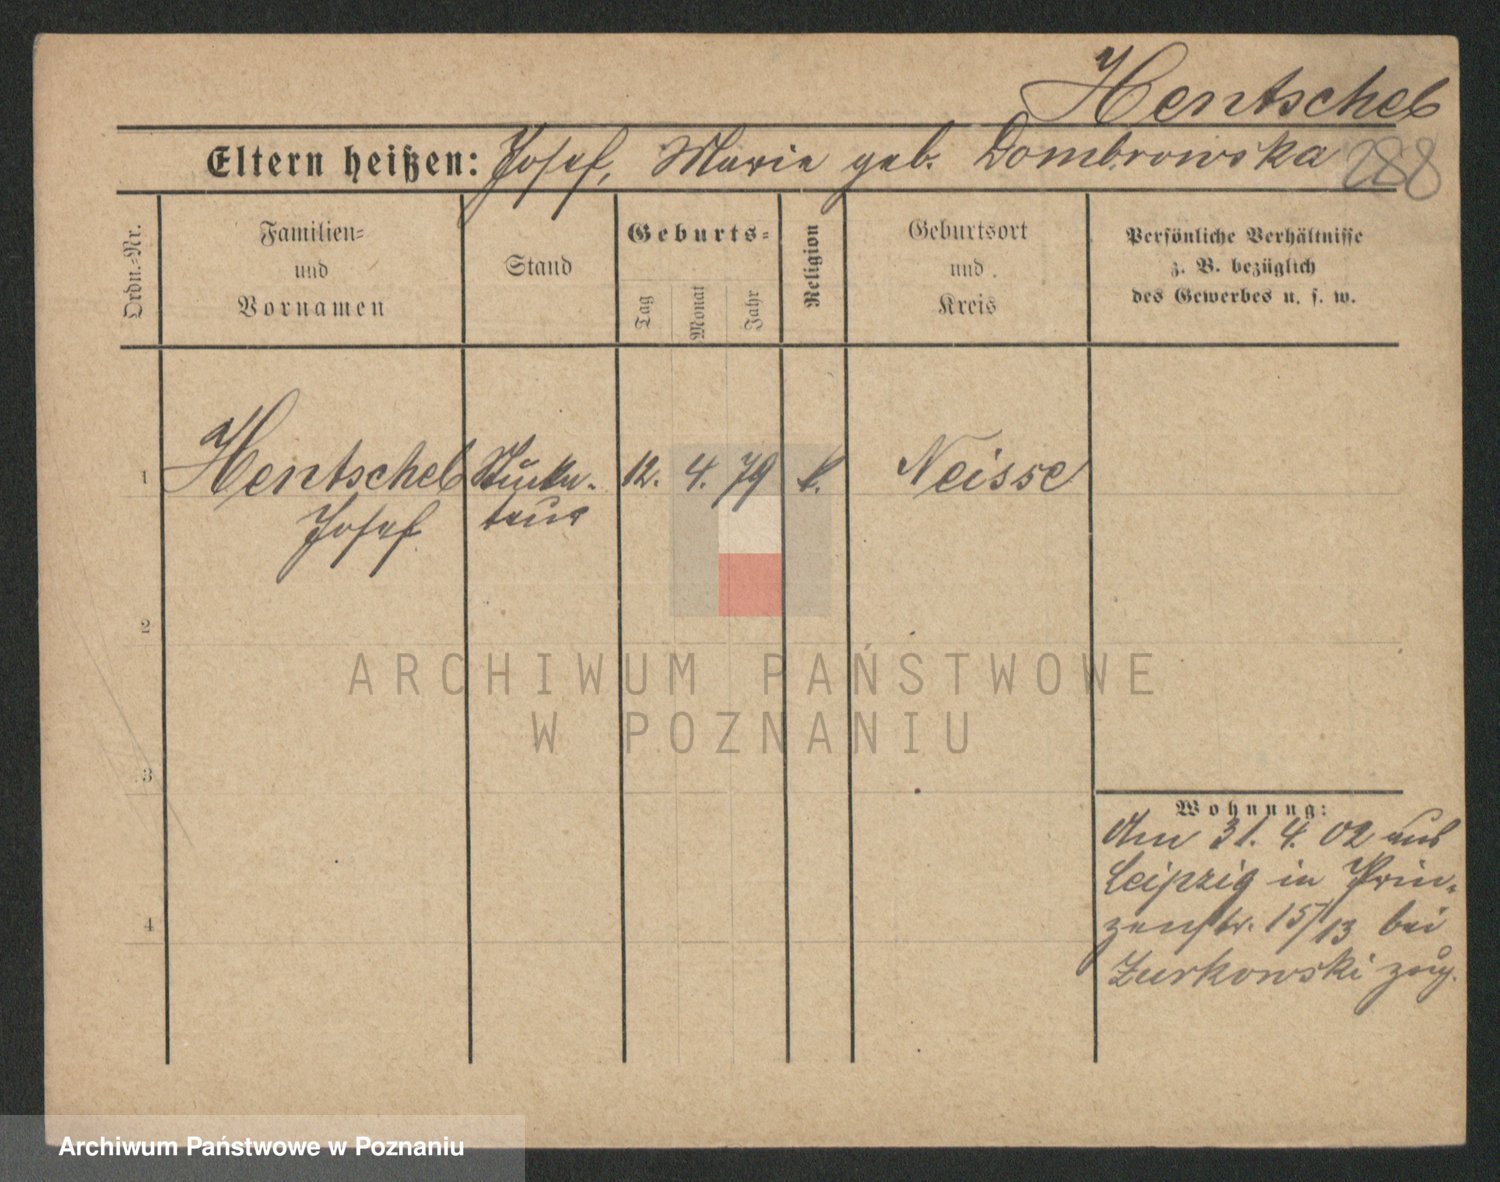 Hentschel
Eltern heißen: Josef, Marie geb. Dombrowska
288
Ordn.-Nr.
Familien-
und
Vornamen
Stand
Geburts-
Tag
Monat
Jahr
Religion
Geburtsort
und
Kreis
Persönliche Verhältnisse
z. B. bezüglich
des Gewerbes u. s. w.
1 Hentschel 12. 4. 79 k. Neisse
Josef
2
ARCHIWUM PAŃSTWOWE
W POZNANIU
3
Wohnung:
Am 31. 4. 02 aus
Leipzig in Prin-
4
zenstr. 15/13 bei
Zurkowski zug.
Archiwum Państwowe w Poznaniu